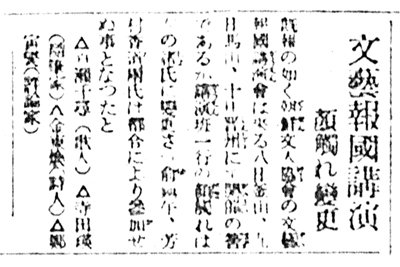 文藝報國講演
顏觸れ變更
既報の如く朝鮮文人協會の文藝
報國講演會は來る八日釜山、九
日馬山、十日晋州にて開催の筈
であるが講演班一行の顏觸れは
左の諸氏に變更され俞鎭午、芳
村香道兩氏は都合により參加せ
ぬ事となつたと
△百瀨千尋(歌人)△寺田瑛
(隨筆家)△金東煥(詩人)△鄭
寅燮(評論家)